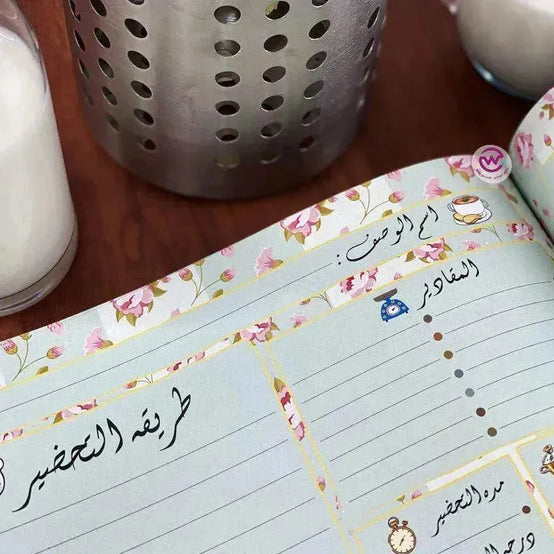 اسم الوصف:
المقادير
طريقه التحضير
مده التحضير